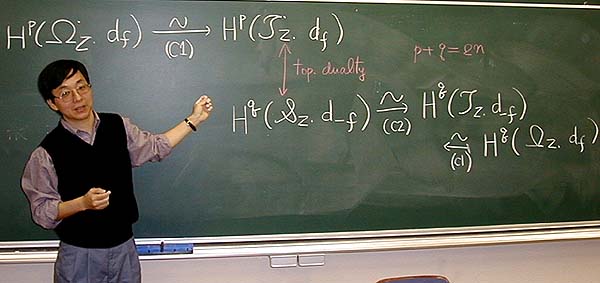 Hᵖ(Ω_Z. d_f) ⥲ (C1) Hᵖ(𝒯_Z. d_f)
top. duality
p + q = 2n
H^q(𝒮_Z. d_-f) ⥲ (C2) H^q(𝒯_Z. d_-f)
⥳ (C1) H^q(Ω_Z. d_f)